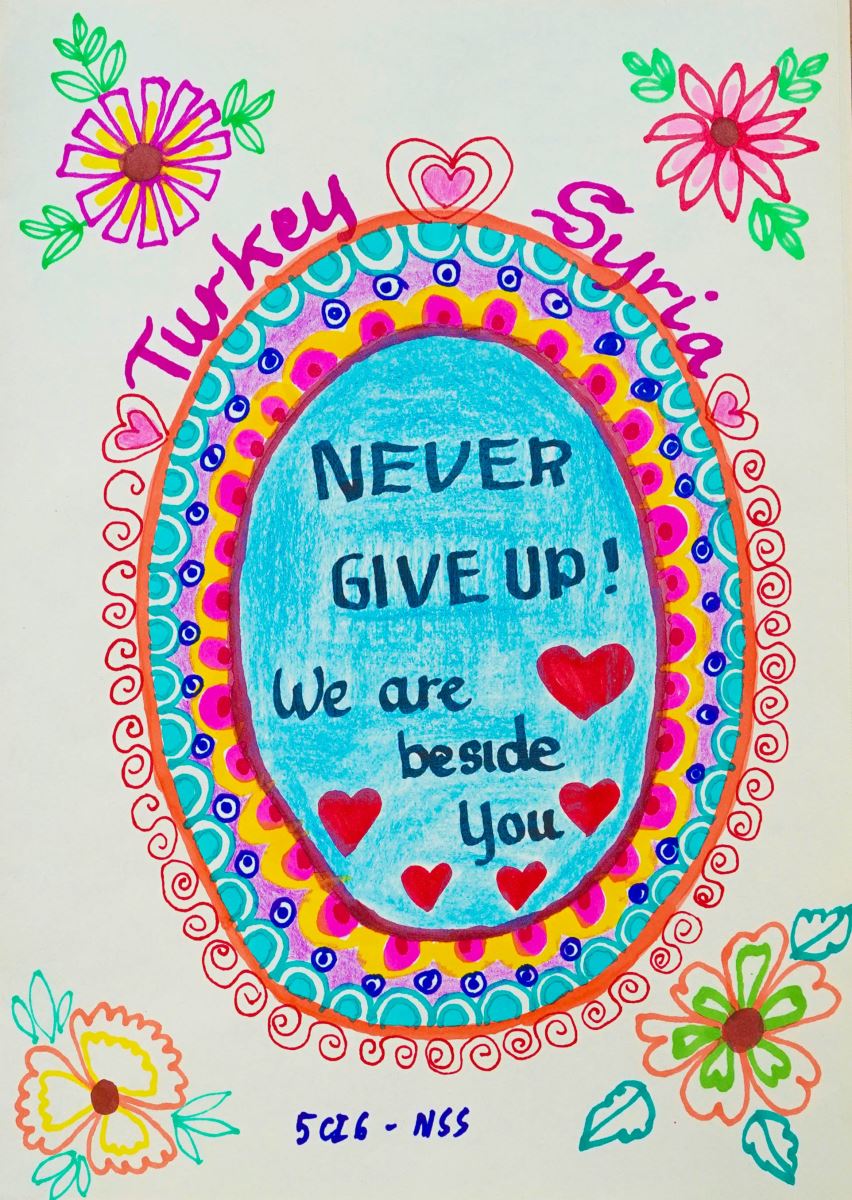 Turkey Syria
NEVER
GIVE UP!
We are
beside
You
5CI6 - NSS